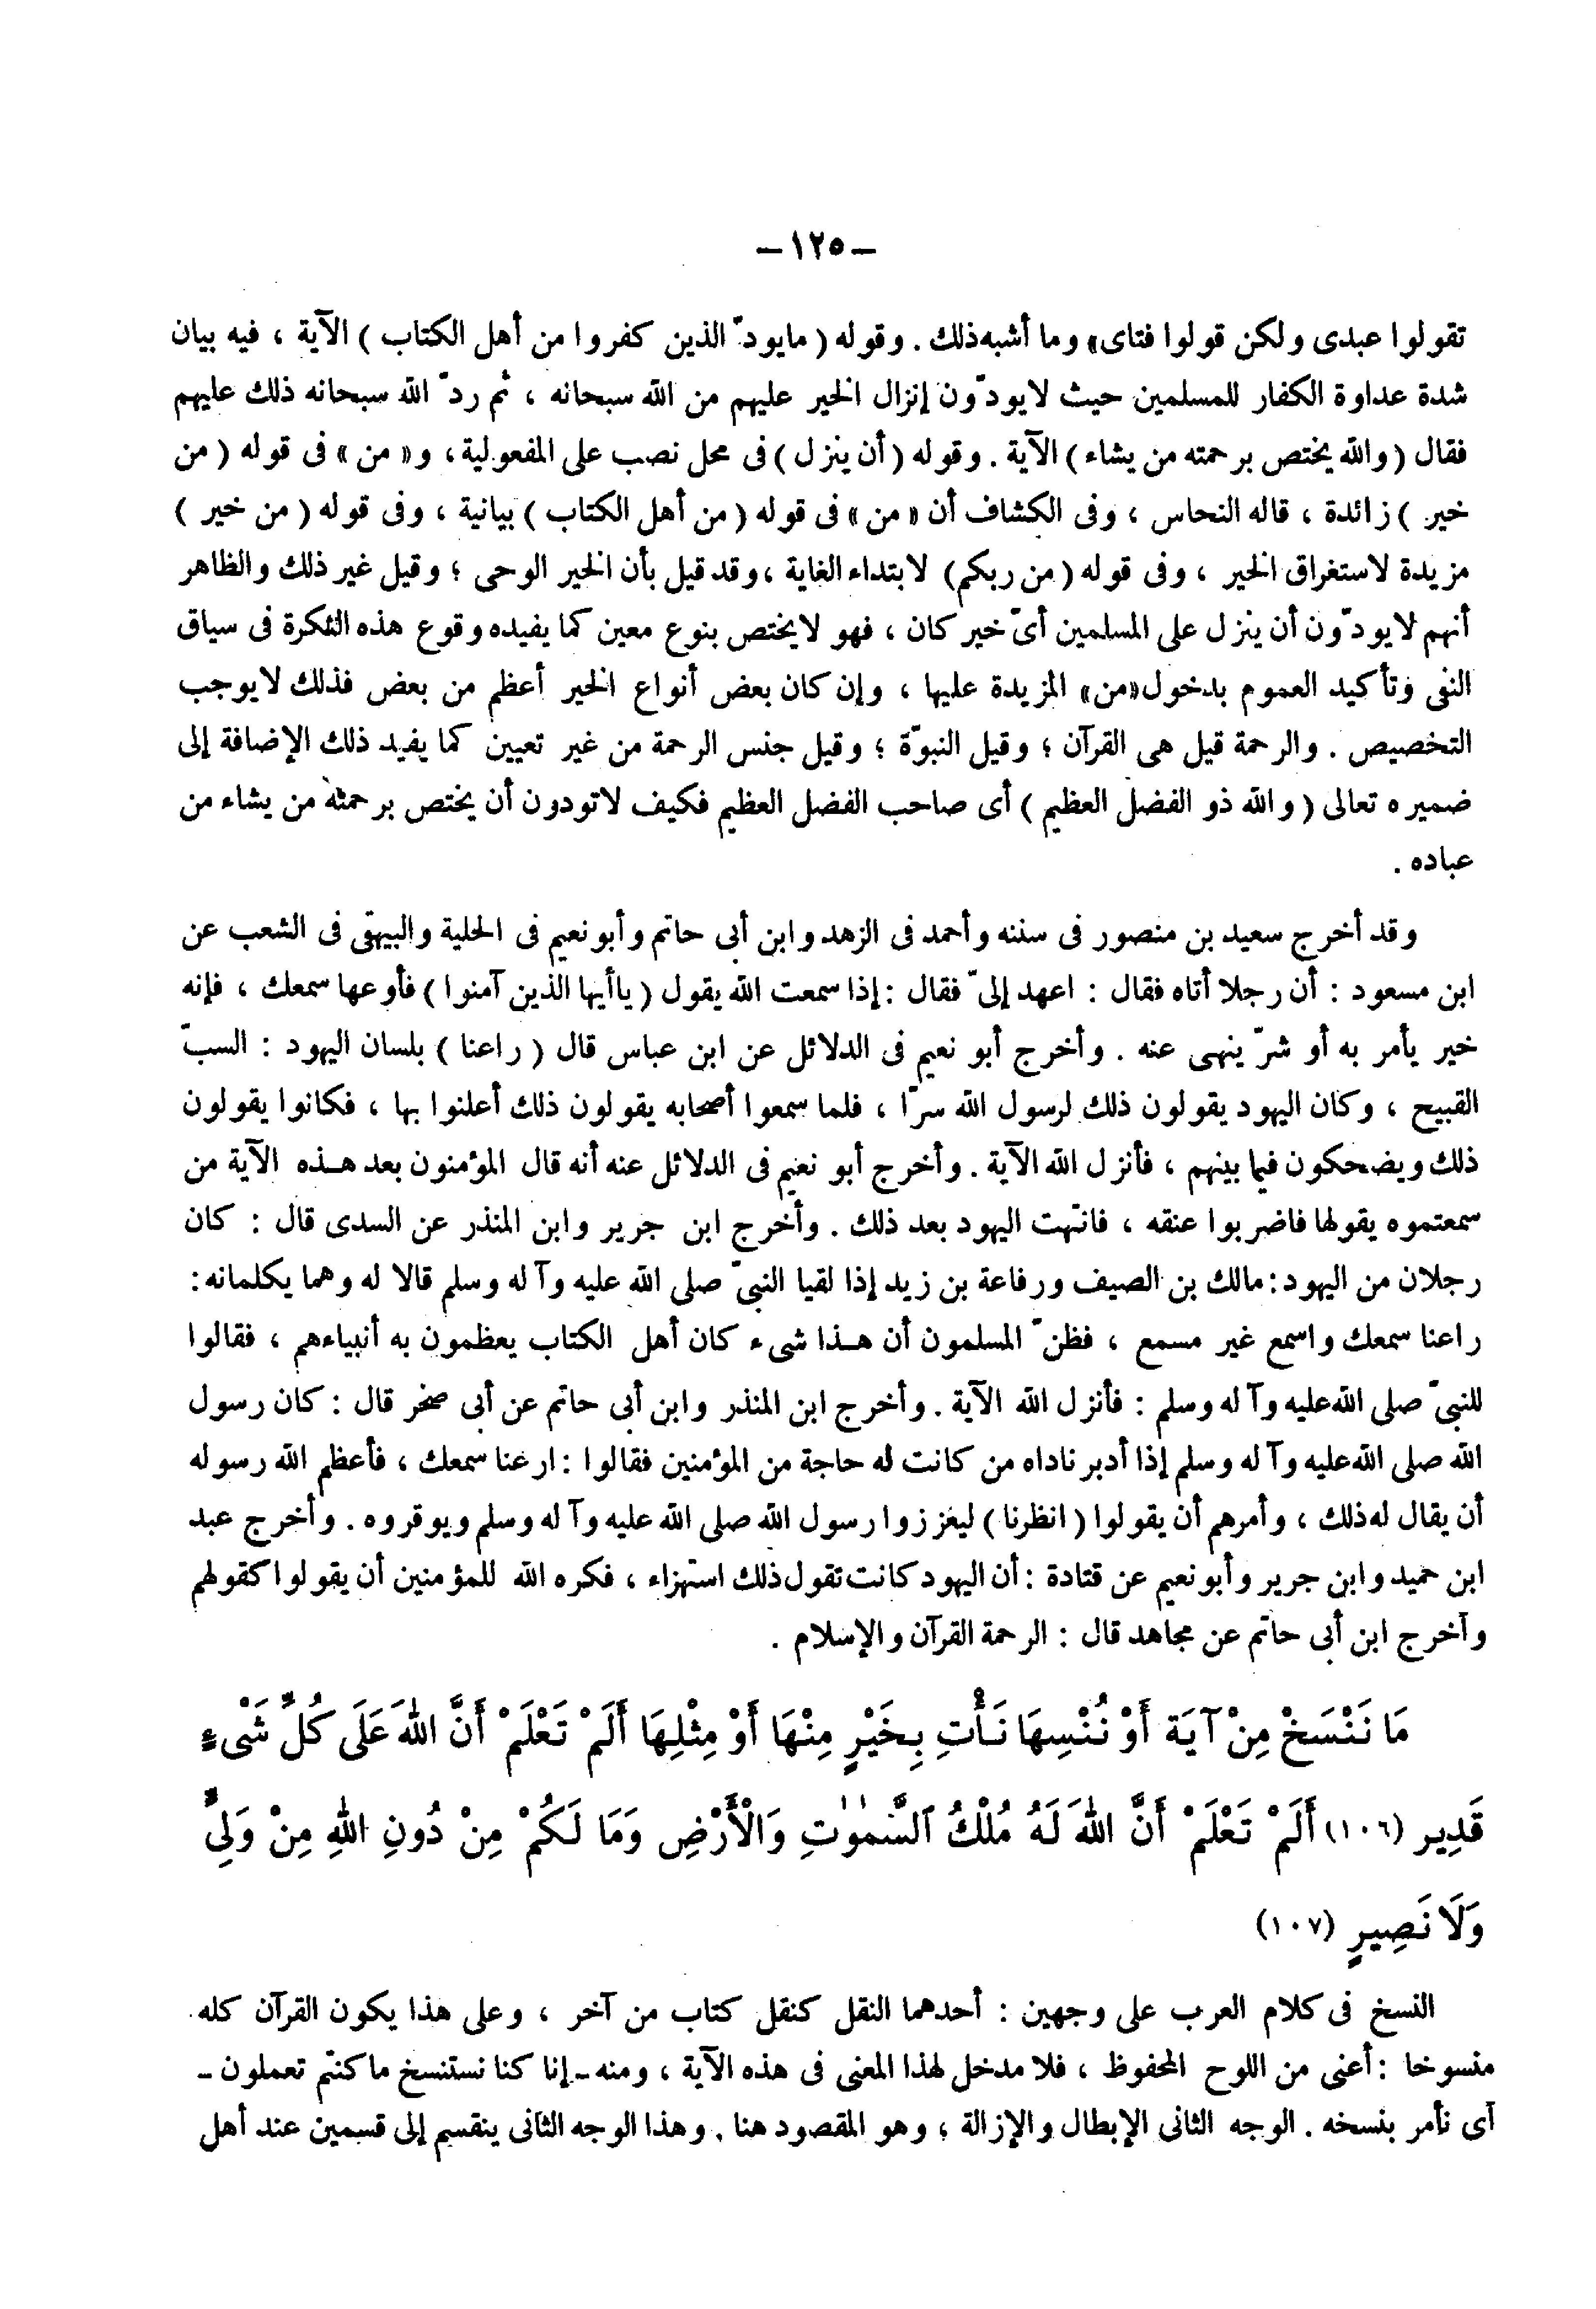 — ١٢٥ —
تقولوا عبدى ولكن قولوا فتاى» وما أشبه ذلك . وقوله ( مايودّ الذين كفروا من أهل الكتاب ) الآية ، فيه بيان
شدة عداوة الكفار للمسلمين حيث لايودّون إنزال الخير عليهم من الله سبحانه ، ثم ردّ الله سبحانه ذلك عليهم
فقال ( والله يختص برحمته من يشاء ) الآية . وقوله ( أن ينزل ) فى محل نصب على المفعولية ، و« من » فى قوله ( من
خير ) زائدة ، قاله النحاس ، وفى الكشاف أن « من » فى قوله ( من أهل الكتاب ) بيانية ، وفى قوله ( من خير )
مزيدة لاستغراق الخير ، وفى قوله ( من ربكم ) لابتداء الغاية ، وقد قيل بأن الخير الوحى ؛ وقيل غير ذلك والظاهر
أنهم لايودّون أن ينزل على المسلمين أىّ خير كان ، فهو لايختص بنوع معين كما يفيده وقوع هذه النكرة فى سياق
النفى وتأكيد العموم بدخول «من» المزيدة عليها ، وإن كان بعض أنواع الخير أعظم من بعض فذلك لايوجب
التخصيص . والرحمة قيل هى القرآن ؛ وقيل النبوّة ؛ وقيل جنس الرحمة من غير تعيين كما يفيد ذلك الإضافة إلى
ضميره تعالى ( والله ذو الفضل العظيم ) أى صاحب الفضل العظيم فكيف لاتودون أن يختص برحمته من يشاء من
عباده .
وقد أخرج سعيد بن منصور فى سننه وأحمد فى الزهد وابن أبى حاتم وأبو نعيم فى الحلية والبيهقى فى الشعب عن
ابن مسعود : أن رجلا أتاه فقال : اعهد إلىّ فقال : إذا سمعت الله يقول ( ياأيها الذين آمنوا ) فأوعها سمعك ، فإنه
خير يأمر به أو شرّ ينهى عنه . وأخرج أبو نعيم فى الدلائل عن ابن عباس قال ( راعنا ) بلسان اليهود : السبّ
القبيح ، وكان اليهود يقولون ذلك لرسول الله سرّا ، فلما سمعوا أصحابه يقولون ذلك أعلنوا بها ، فكانوا يقولون
ذلك ويضحكون فيما بينهم ، فأنزل الله الآية . وأخرج أبو نعيم فى الدلائل عنه أنه قال المؤمنون بعد هـذه الآية من
سمعتموه يقولها فاضربوا عنقه ، فانتهت اليهود بعد ذلك . وأخرج ابن جرير وابن المنذر عن السدى قال : كان
رجلان من اليهود : مالك بن الصيف ورفاعة بن زيد إذا لقيا النبىّ صلى الله عليه وآله وسلم قالا له وهما يكلمانه :
راعنا سمعك واسمع غير مسمع ، فظنّ المسلمون أن هـذا شىء كان أهل الكتاب يعظمون به أنبياءهم ، فقالوا
للنبىّ صلى الله عليه وآله وسلم : فأنزل الله الآية . وأخرج ابن المنذر وابن أبى حاتم عن أبى صخر قال : كان رسول
الله صلى الله عليه وآله وسلم إذا أدبر ناداه من كانت له حاجة من المؤمنين فقالوا : ارعنا سمعك ، فأعظم الله رسوله
أن يقال له ذلك ، وأمرهم أن يقولوا ( انظرنا ) ليعززوا رسول الله صلى الله عليه وآله وسلم ويوقروه . وأخرج عبد
ابن حميد وابن جرير وأبو نعيم عن قتادة : أن اليهود كانت تقول ذلك استهزاء ، فكره الله للمؤمنين أن يقولوا كقولهم
وأخرج ابن أبى حاتم عن مجاهد قال : الرحمة القرآن والإسلام .
مَا نَنْسَخْ مِنْ آيَة أَوْ نُنْسِهَا نَأْتِ بِخَيْرٍ مِنْهَا أَوْ مِثْلِهَا أَلَمْ تَعْلَمْ أَنَّ اللهَ عَلَى كُلِّ شَىْءٍ
قَدِير (١٠٦) أَلَمْ تَعْلَمْ أَنَّ اللهَ لَهُ مُلْكُ ٱلسَّمٰوٰتِ وَالْأَرْضِ وَمَا لَكُمْ مِنْ دُونِ اللهِ مِنْ وَلِىٍّ
وَلَا نَصِيرٍ (١٠٧)
النسخ فى كلام العرب على وجهين : أحدهما النقل كنقل كتاب من آخر ، وعلى هذا يكون القرآن كله
منسوخا : أعنى من اللوح المحفوظ ، فلا مدخل لهذا المعنى فى هذه الآية ، ومنه - إنا كنا نستنسخ ما كنتم تعملون -
أى نأمر بنسخه . الوجه الثانى الإبطال والإزالة ، وهو المقصود هنا . وهذا الوجه الثانى ينقسم إلى قسمين عند أهل